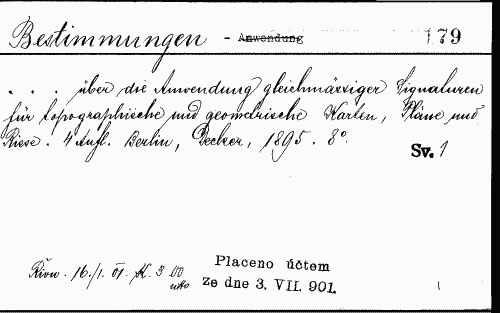 Bestimmungen - Anwendung 179
. . . über die Anwendung gleichmässiger Signaturen
für topographische und geometrische Karten, Pläne und
Risse. 4 Aufl. Berlin, Decker, 1895. 8°.
Sv. 1
Řivn. 16./1. 01. K. 3
Placeno účtem
ze dne 3. VII. 901.